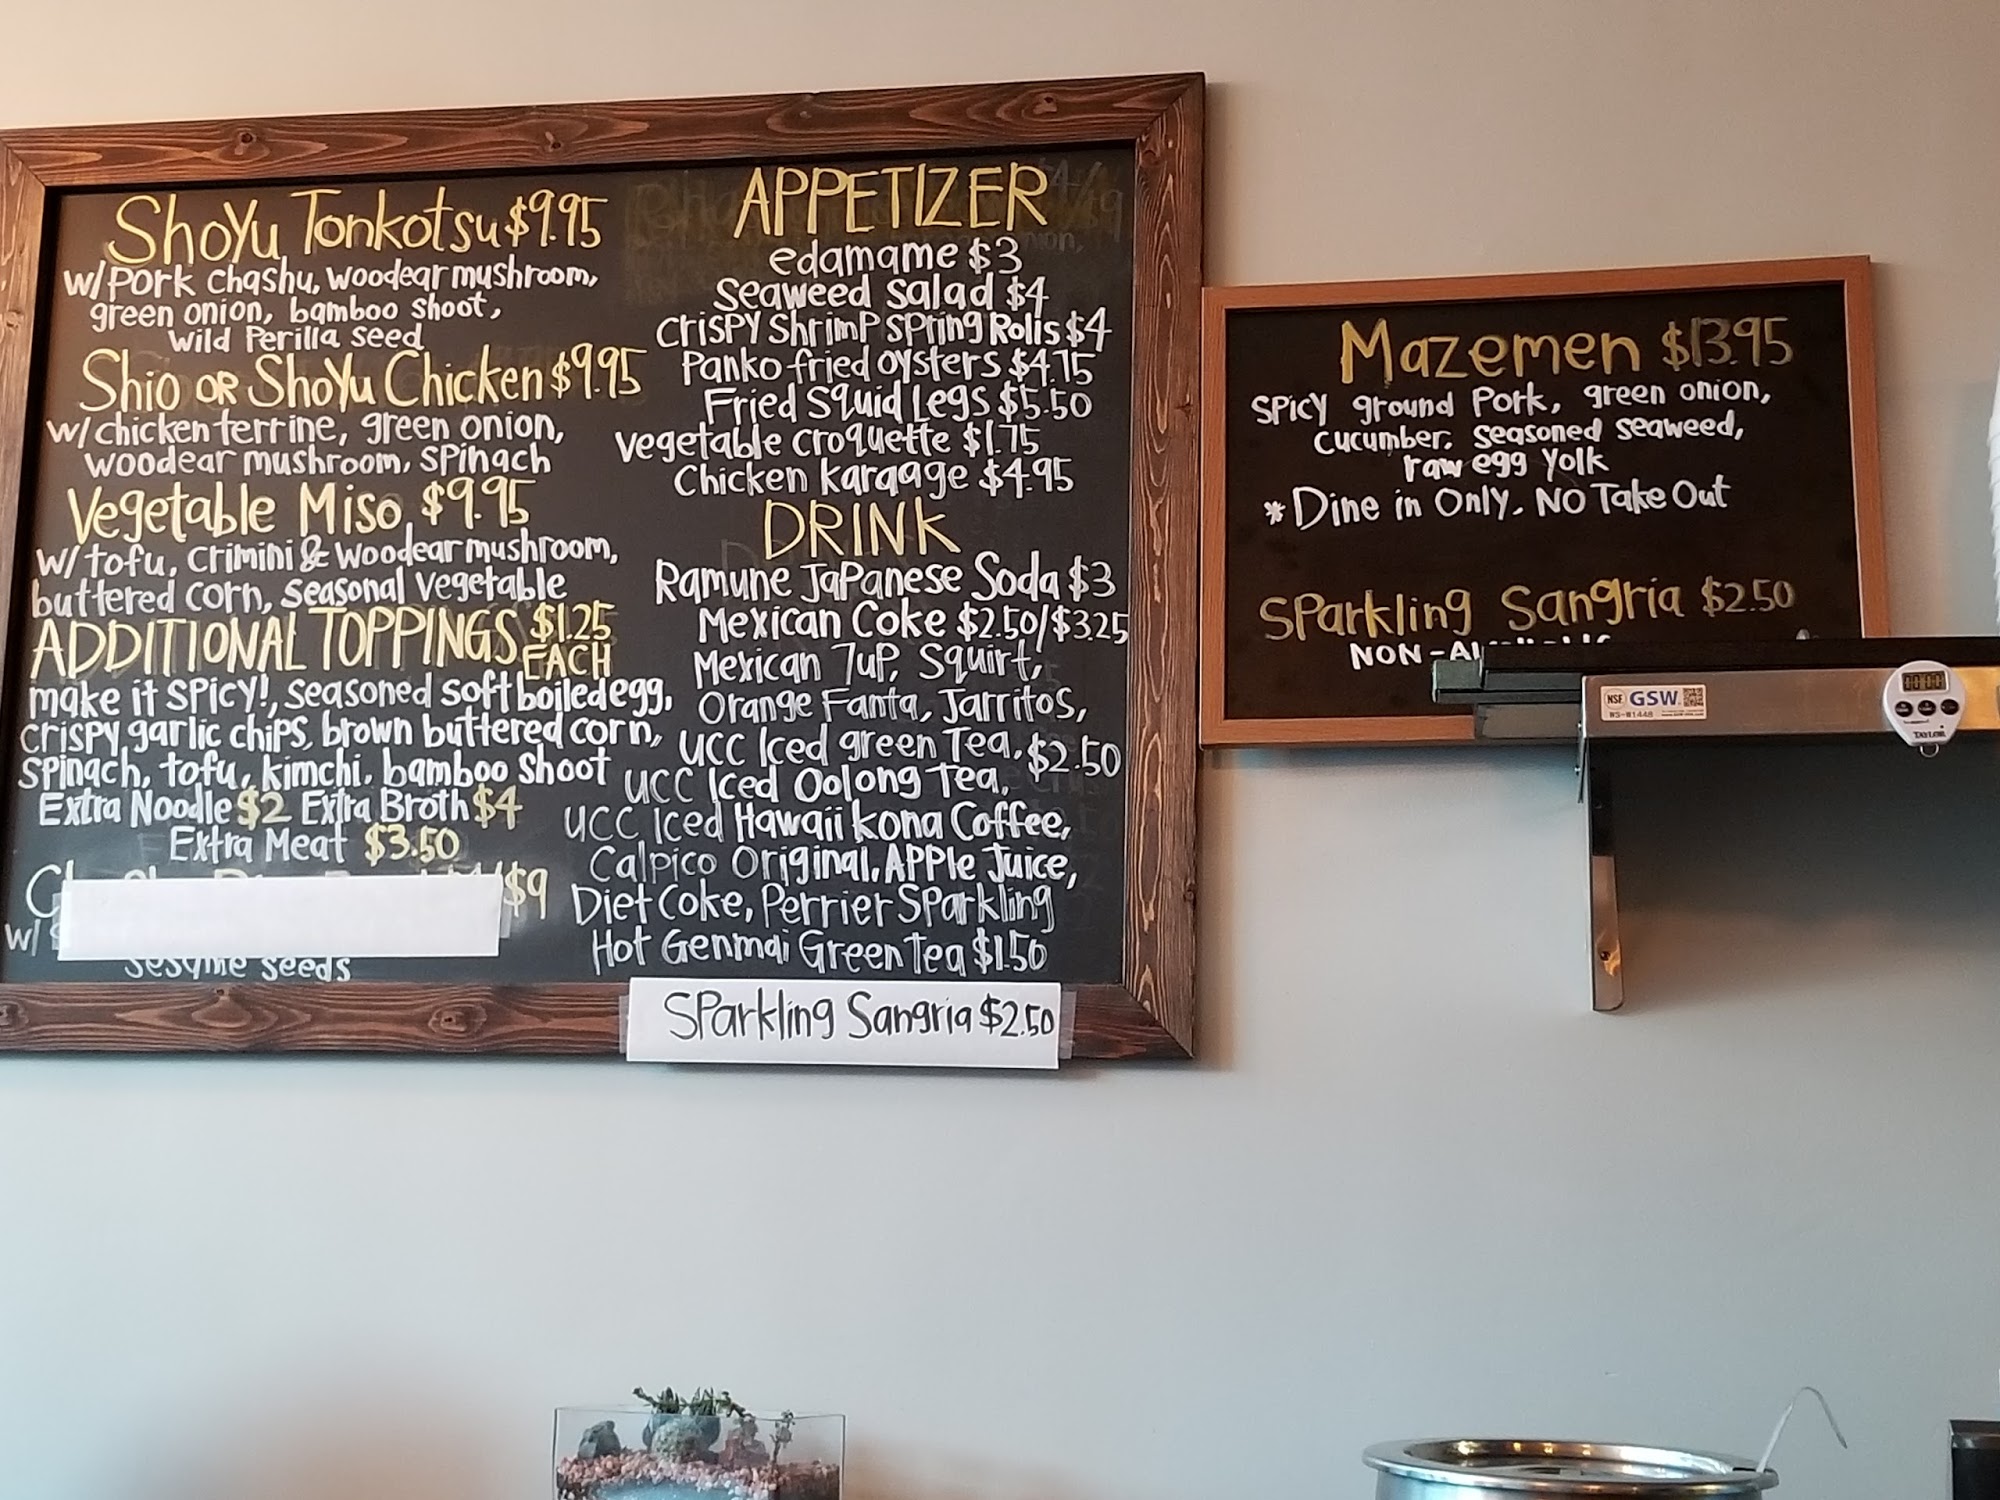 Shoyu Tonkotsu $9.95
w/pork chashu, woodear mushroom,
green onion, bamboo shoot,
wild perilla seed
Shio OR Shoyu Chicken $9.95
w/chicken terrine, green onion,
woodear mushroom, spinach
Vegetable Miso $9.95
w/tofu, crimini & woodear mushroom,
buttered corn, seasonal vegetable
ADDITIONAL TOPPINGS $1.25 EACH
make it spicy!, seasoned soft boiled egg,
crispy garlic chips, brown buttered corn,
spinach, tofu, kimchi, bamboo shoot
Extra Noodle $2 Extra Broth $4
Extra Meat $3.50
$9
w/
sesame seeds
APPETIZER
edamame $3
seaweed salad $4
crispy shrimp spring Rolls $4
Panko fried oysters $4.75
Fried squid legs $5.50
vegetable croquette $1.75
chicken karaage $4.95
DRINK
Ramune Japanese Soda $3
Mexican Coke $2.50/$3.25
Mexican 7up, Squirt,
Orange Fanta, Jarritos,
UCC Iced green Tea, $2.50
UCC Iced Oolong Tea,
UCC Iced Hawaii kona Coffee,
Calpico Original, Apple Juice,
Diet Coke, Perrier Sparkling
Hot Genmai Green Tea $1.50
Sparkling Sangria $2.50
Mazemen $13.95
spicy ground pork, green onion,
cucumber, seasoned seaweed,
raw egg yolk
* Dine in Only, NO Take Out
Sparkling Sangria $2.50
NON-
NSF GSW
WS-W1448
TAYLOR